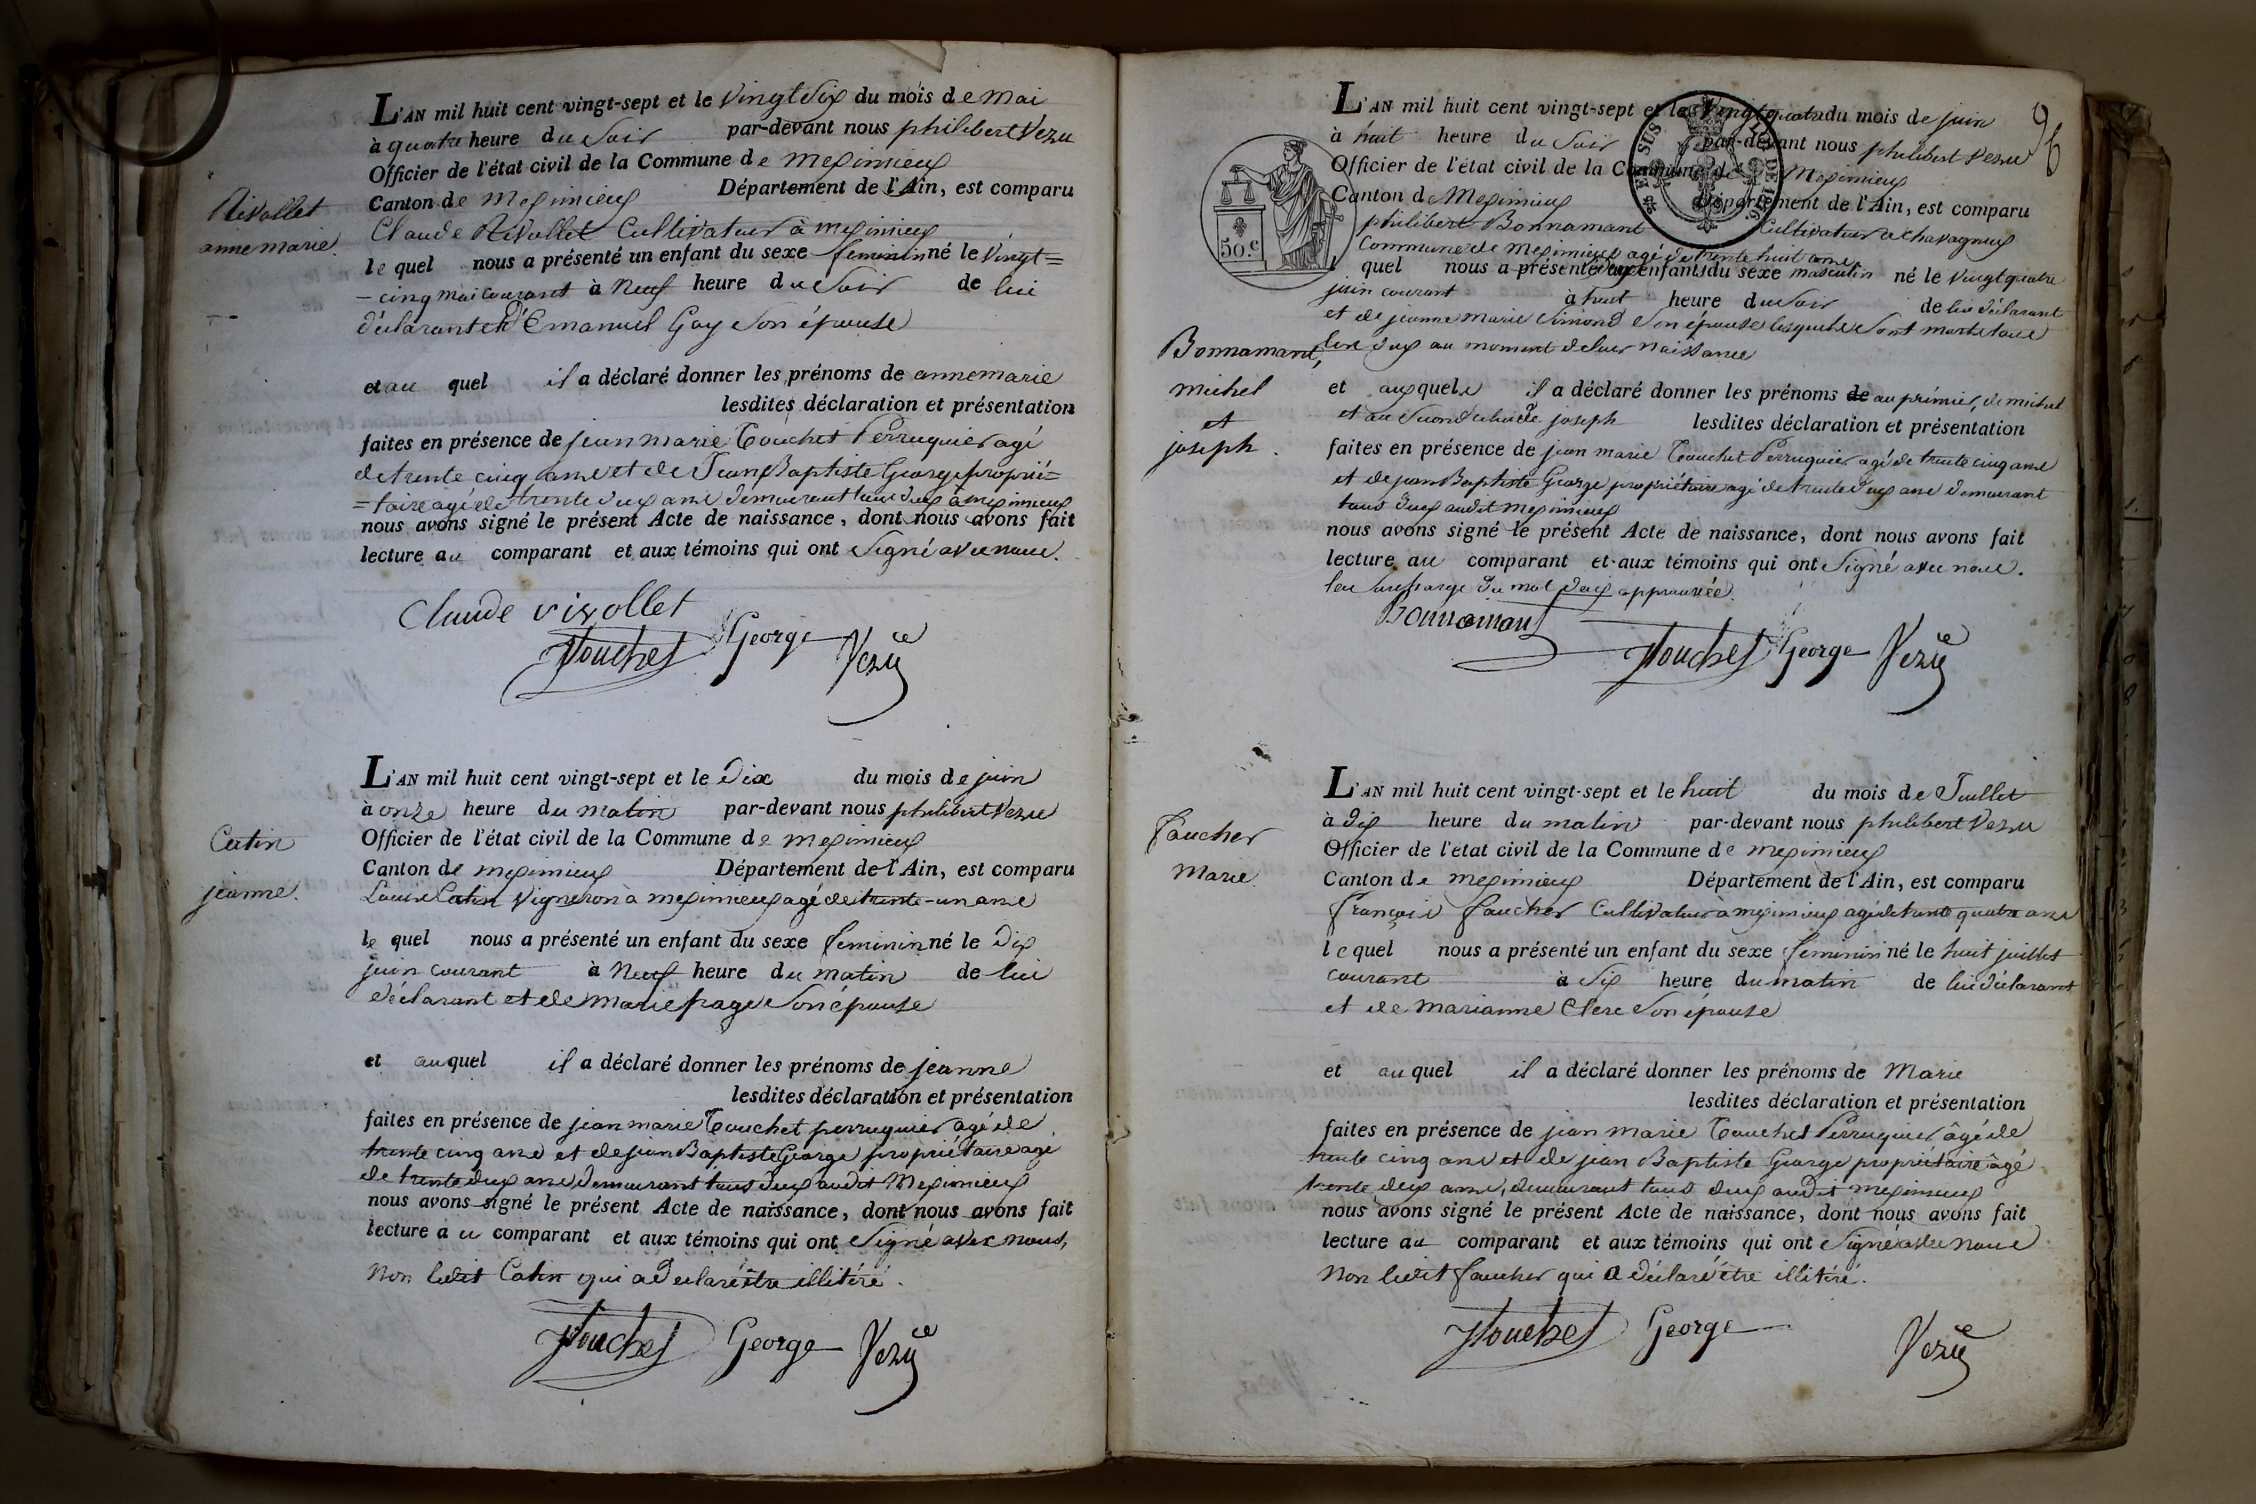 L'AN mil huit cent vingt-sept et le vingt six du mois de mai
à quatre heure du soir par-devant nous philibert Vezu
Officier de l'état civil de la Commune de meximieux
Canton de meximieux Département de l'Ain, est comparu
Rivollet
anne marie.
Claude Rivollet Cultivateur à meximieux
le quel nous a présenté un enfant du sexe feminin né le vingt=
- cinq mai courant à neuf heure du soir de lui
déclarant et d'Emanuel Gay son épouse
et au quel il a déclaré donner les prénoms de anne marie
lesdites déclaration et présentation
faites en présence de jean marie Touchet Perruquier agé
de trente cinq ans et de Jean Baptiste George proprié=
=taire agé de trente deux ans demeurant tous deux à meximieux
nous avons signé le présent Acte de naissance, dont nous avons fait
lecture au comparant et aux témoins qui ont signé avec nous.
Claude rivollet
Touchet George Vezu
L'AN mil huit cent vingt-sept et le dix du mois de juin
à onze heure du matin par-devant nous philibert Vezu
Officier de l'état civil de la Commune de meximieux
Canton de meximieux Département de l'Ain, est comparu
Catin
jeanne.
Louis Catin Vigneron à meximieux agé de trente-un ans
le quel nous a présenté un enfant du sexe feminin né le dix
juin courant à neuf heure du matin de lui
déclarant et de marie page son épouse
et au quel il a déclaré donner les prénoms de jeanne
lesdites déclaration et présentation
faites en présence de jean marie Touchet perruquier agé de
trente cinq ans et de jean Baptiste George propriétaire agé
de trente deux ans demeurant tous deux audit Meximieux
nous avons signé le présent Acte de naissance, dont nous avons fait
lecture au comparant et aux témoins qui ont signé avec nous,
Non ledit Catin qui a déclaré être illitéré.
Touchet George Vezu
96
L'AN mil huit cent vingt-sept et le vingt quatre du mois de juin
à huit heure du soir par-devant nous philibert Vezu
Officier de l'état civil de la Commune de Meximieux
Canton de Meximieux Département de l'Ain, est comparu
50.c
philibert Bonnamant Cultivateur à Chavagneux
Commune de meximieux agé de trente huit ans
quel nous a présenté deux enfants du sexe masculin né le vingt quatre
juin courant à huit heure du soir de lui déclarant
et de jeanne marie Simond son épouse lesquels sont morts tous
les deux au moment de leur naissance
Bonnamant,
michel
et
joseph.
et auxquels il a déclaré donner les prénoms de au prémier, de michel
et au second celui de joseph lesdites déclaration et présentation
faites en présence de jean marie Touchet Perruquier agé de trente cinq ans
et de jean Baptiste George propriétaire agé de trente deux ans demeurant
tous deux audit meximieux
nous avons signé le présent Acte de naissance, dont nous avons fait
lecture au comparant et aux témoins qui ont signé avec nous.
la surcharge du mot deux approuvée.
Bonnamant
Touchet George Vezu
L'AN mil huit cent vingt-sept et le huit du mois de Juillet
à dix heure du matin par-devant nous philibert Vezu
Officier de l'etat civil de la Commune de meximieux
Canton de meximieux Département de l'Ain, est comparu
faucher
Marie.
françois faucher Cultivateur à meximieux agé de trente quatre ans
le quel nous a présenté un enfant du sexe feminin né le huit juillet
courant à six heure du matin de lui déclarant
et de marianne Clerc son épouse
et au quel il a déclaré donner les prénoms de Marie
lesdites déclaration et présentation
faites en présence de jean marie Touchet Perruquier âgé de
trente cinq ans et de jean Baptiste George propriétaire âgé
trente deux ans, demeurant tous deux audit meximieux
nous avons signé le présent Acte de naissance, dont nous avons fait
lecture au comparant et aux témoins qui ont signé avec nous
Non ledit faucher qui a déclaré être illitéré.
Touchet George Vezu